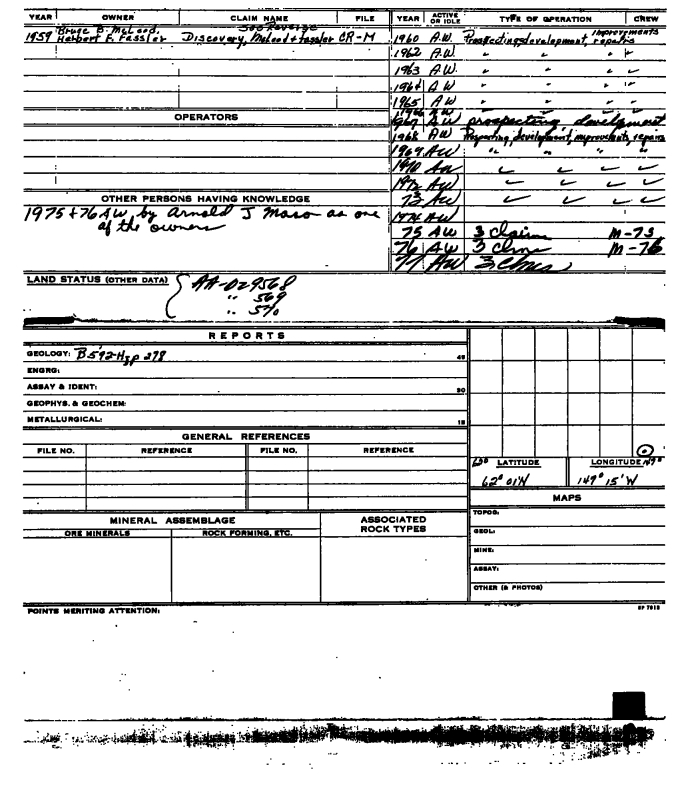 YEAR OWNER CLAIM NAME FILE YEAR ACTIVE OR IDLE TYPE OF OPERATION CREW
See Reverse
1959 Bruce B. McLeod,
Herbert F. Fassler Discovery, McLeod + Fassler CR-M
1960 A.W. Prospecting, development, improvements repairs
1962 A.W. " " "
1963 A.W. " " "
1964 A W " " "
1965 A W " " "
OPERATORS
1966 AW
1967 AW prospecting development
1968 AW Prospecting, development, improvements, repairs
1969 AW " " " "
1970 AW
1972 AW
73 AW
OTHER PERSONS HAVING KNOWLEDGE
1975 + 76 AW by Arnold J as one
of the owners
1974 AW
75 AW 3 Claims M-75
76 AW 3 Clms M-76
77 AW 3 Clms
LAND STATUS (OTHER DATA)
AA-029568
" 569
" 570
REPORTS
GEOLOGY: B 592-H, p 278 45
ENGRG:
ASSAY & IDENT: 30
GEOPHYS. & GEOCHEM:
METALLURGICAL: 15
GENERAL REFERENCES
FILE NO. REFERENCE FILE NO. REFERENCE
LATITUDE LONGITUDE 149°
62° 01'N 149° 15'W
MAPS
TOPOG:
GEOL:
MINE:
ASSAY:
OTHER (& PHOTOS)
MINERAL ASSEMBLAGE ASSOCIATED ROCK TYPES
ORE MINERALS ROCK FORMING, ETC.
POINTS MERITING ATTENTION: